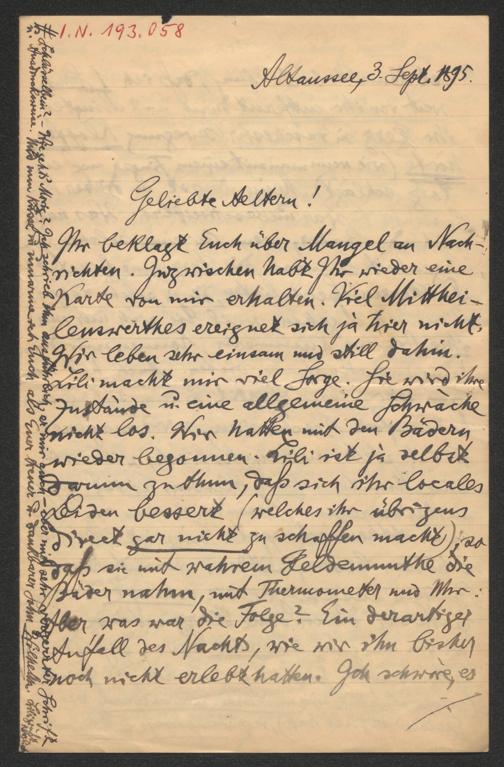 I.N. 193.058
Altaussee, 3. Sept. 1895.
Geliebte Aeltern!
Ihr beklagt Euch über Mangel an Nach-
richten. Inzwischen habt Ihr wieder eine
Karte von mir erhalten. Viel Mitthei-
lenswerthes ereignet sich ja hier nicht.
Wir leben sehr einsam und still dahin.
Lili macht mir viel Sorge. Sie wird ihre
Zustände u. eine allgemeine Schwäche
nicht los. Wir hatten mit den Bädern
wieder begonnen. Lili ist ja selbst
darum zu thun, daß sich ihr locales
Leiden bessert (welches ihr übrigens
direct gar nicht zu schaffen macht), so
daß sie mit wahrem Heldenmuthe die
Bäder nahm, mit Thermometer und Uhr.
Aber was war die Folge? Ein derartiger
Anfall des Nachts, wie wir ihn bisher
noch nicht erlebt hatten. Ich schwöre, es
Wie geht's Ich schrieb ihm ausführlich, er mir auch, aber mit sehr Schrift
u. Nun umarme ich Euch als Euer treuer u. dankbarer Sohn Wilhelm.